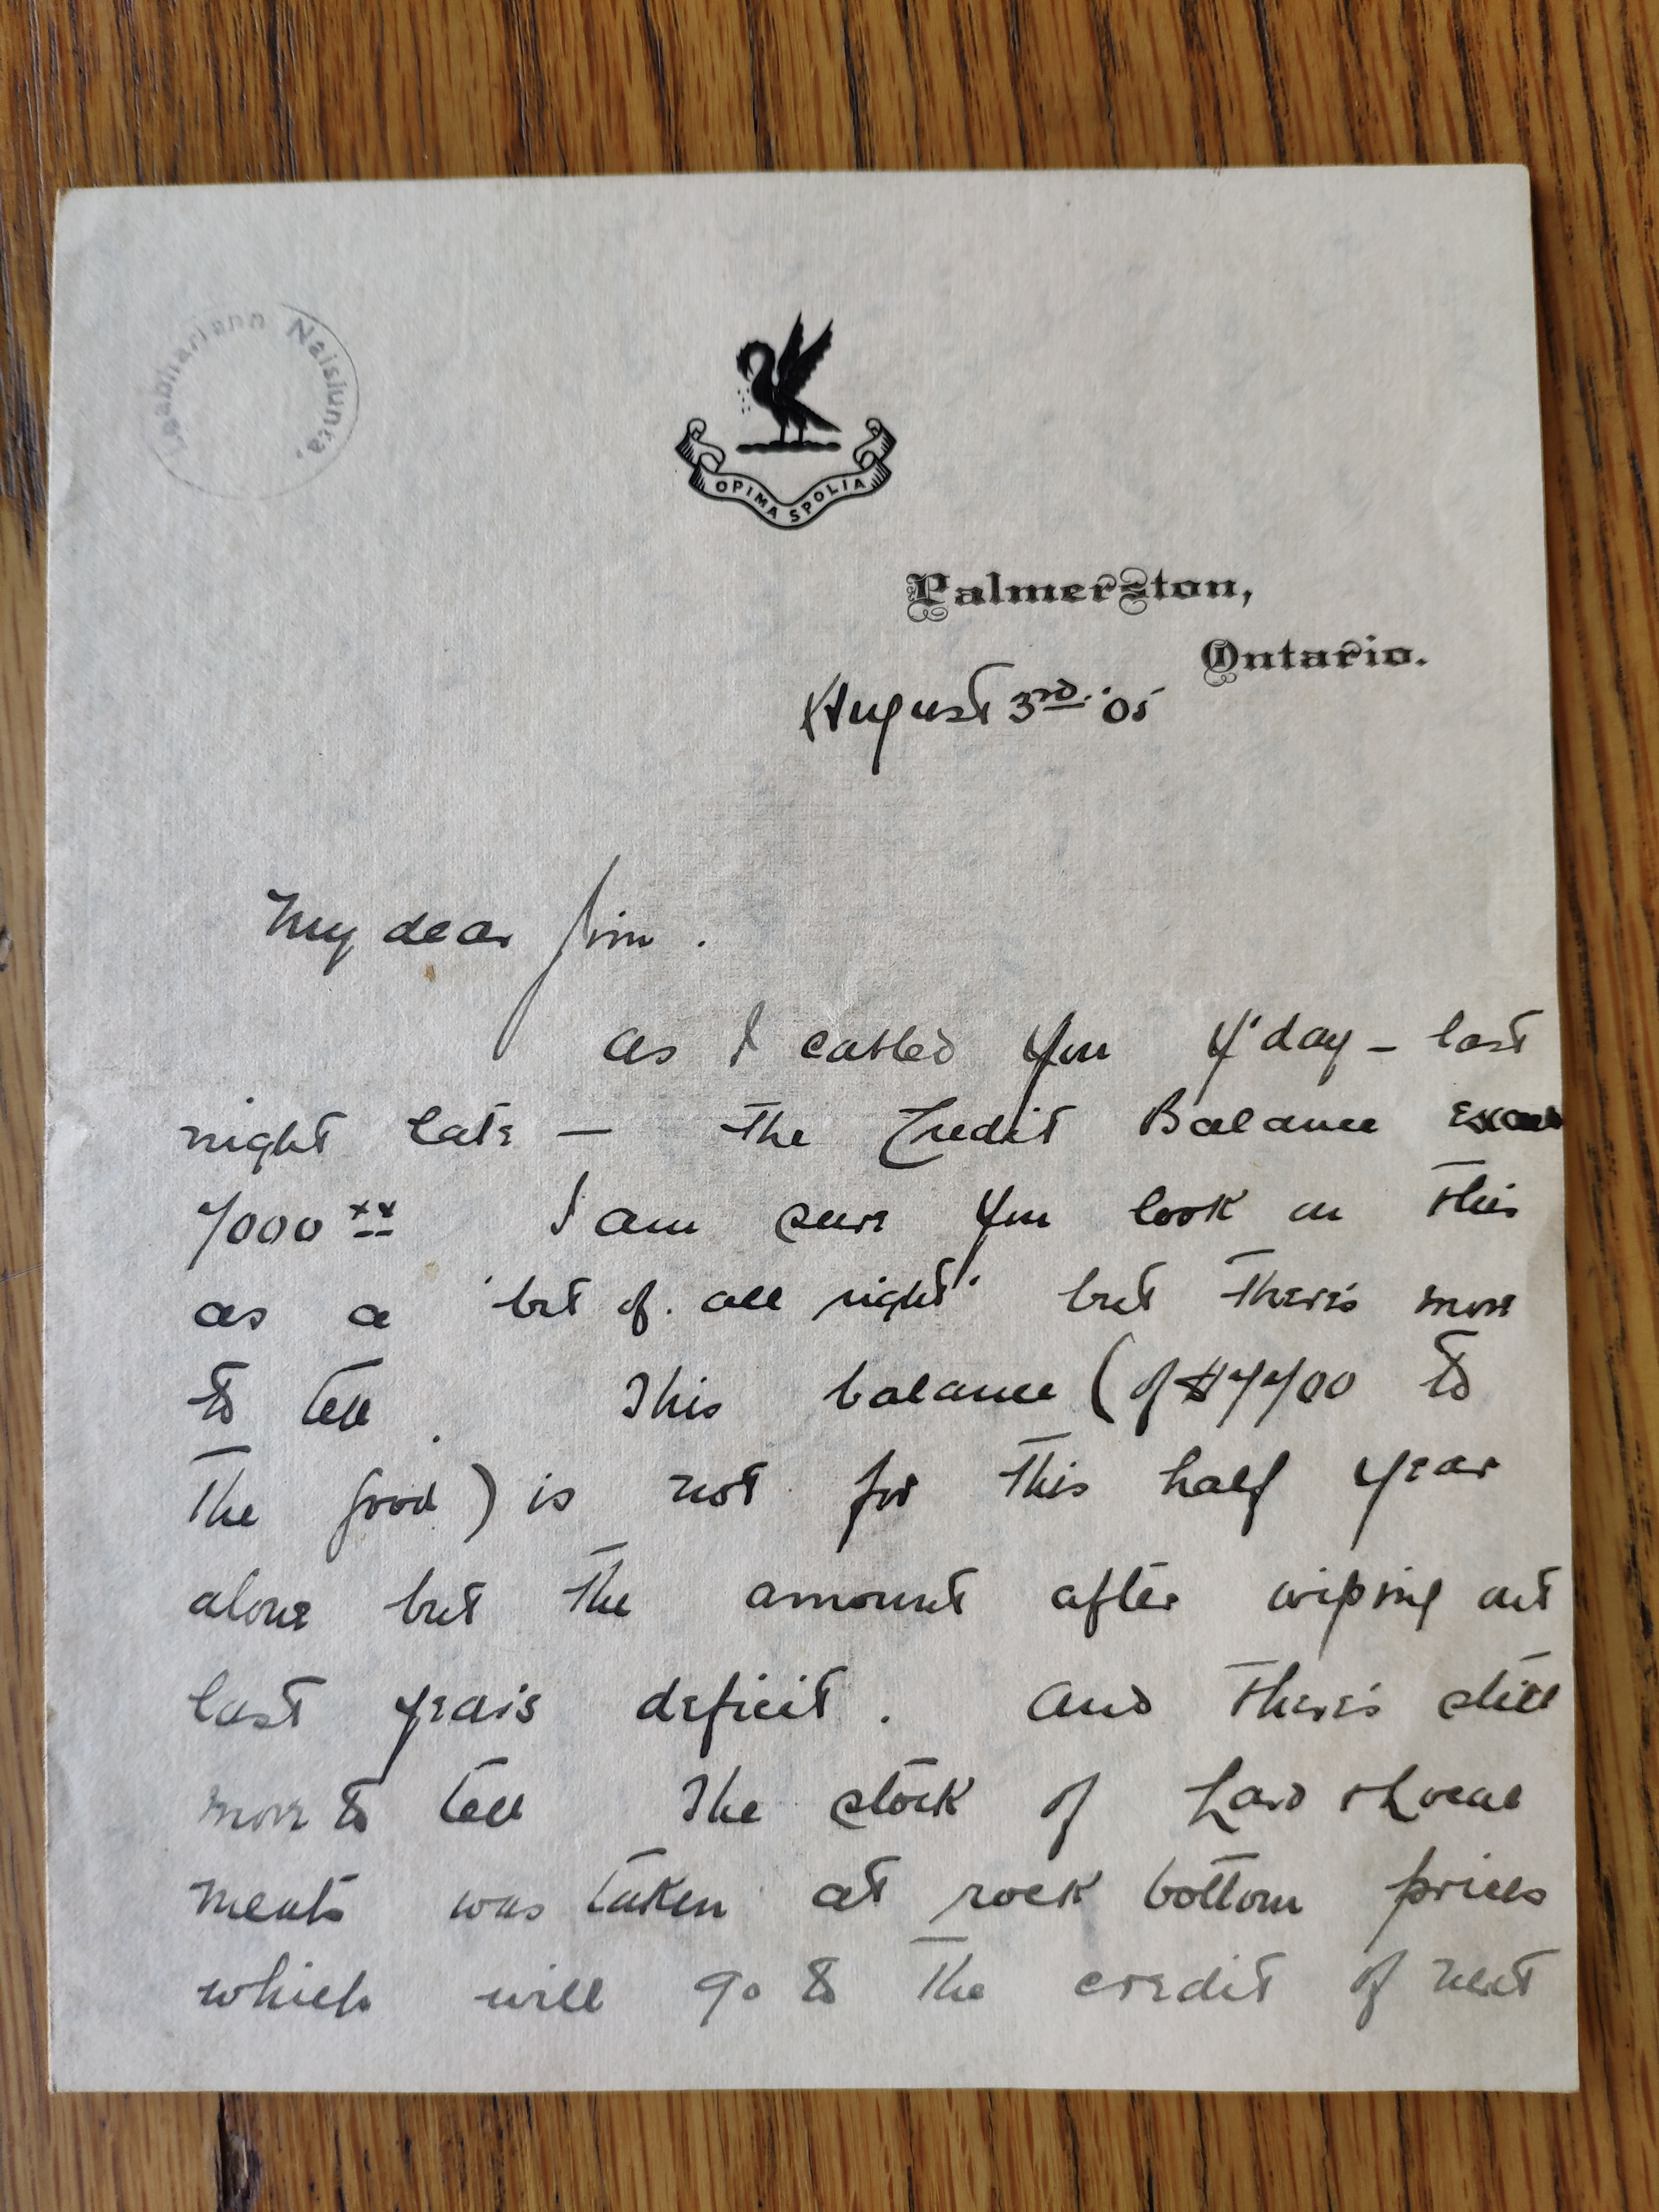 Leabharlann Náisiúnta.
OPIMA SPOLIA
Palmerston,
Ontario.
August 3rd. '05
My dear Jim.
as I cabled you y'day - last
night late — The Credit Balance
7000 xx I am sure you look on this
as a 'bit of all right' but there's more
to tell. This balance (of $7700 to
the good) is not for this half year
alone but the amount after wiping out
last year's deficit. And there's still
more to tell The stock of Lard &
meats was taken at rock bottom prices
which will go to the credit of next